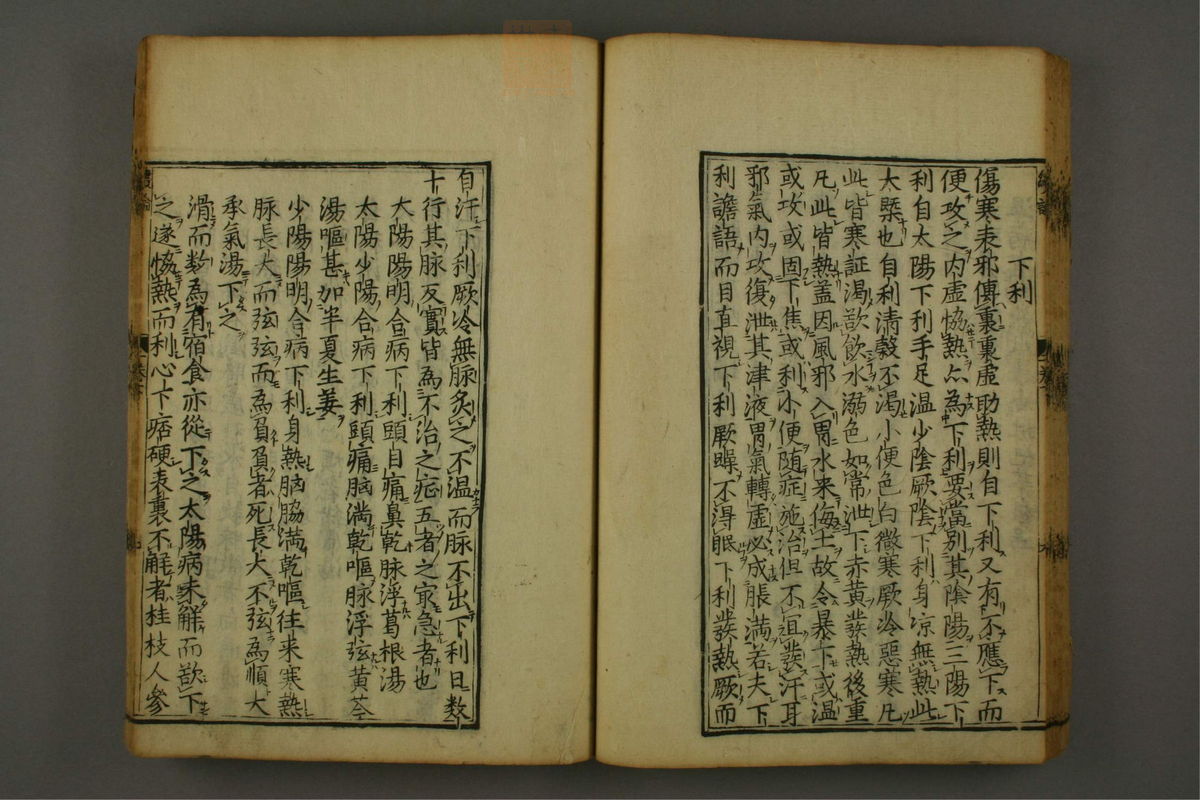 下利
傷寒表邪傳裏裏虚助熱則自下利又有不應下而
便攻之内虚恊熱亦為下利要當別其陰陽三陽下
利自太陽下利手足温少陰厥陰下利身凉無熱此
大槩也自利清穀不渇小便色白微寒厥冷惡寒凡
此皆寒証渇欲飲水溺色如常泄下赤黄發熱後重
凡此皆熱蓋因風邪入胃水来侮土故令暴下或温
或攻或固下焦或利小便随症施治但不宜發汗耳
邪氣内攻復泄其津液胃氣轉虚必成脹満若夫下
利譫語而目直視下利厥躁不得眠下利發熱厥而
自汗下利厥冷無脉灸之不温而脉不出下利日数
十行其脉反實皆為不治之症五者之㝡急者也
大陽陽明合病下利頭目痛鼻乾脉浮葛根湯
太陽少陽合病下利頭痛脑満乾嘔脉浮弦黄芩
湯嘔甚加半夏生姜
少陽陽明合病下利身熱脑脇満乾嘔往来寒熱
脉長大而弦弦而為負負者死長大不弦為順大
承氣湯下之
滑而数為有宿食亦從下之太陽病未觧而欲下
之遂恊熱而利心下痞硬表裏不觧者桂枝人參